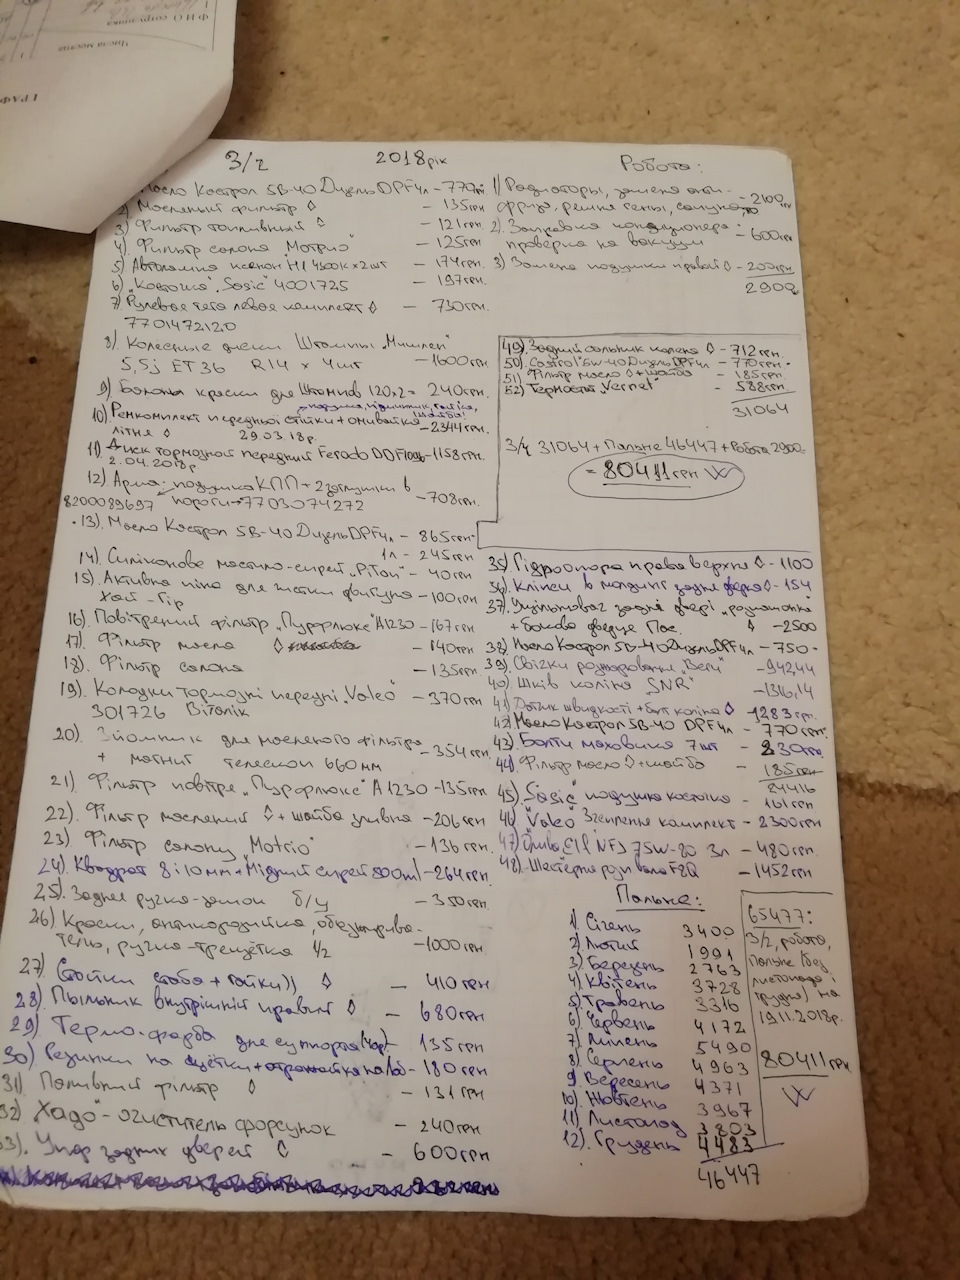 ГРАФ
Числа месяца
Ф И О сотрудника
З/ч 2018рік
Масло Кострол 5В-40 Дизель DPF 4л - 770грн
2) Масленый фильтр ◊ - 135грн
3) Фильтр топливный ◊ - 121грн
4) Фильтр салона "Мотрио" - 125грн
5) Автолампа ксенон H1 4300к x 2шт - 174грн
6) "Косточка "Sasic" 4001725 - 197грн
7) Рулевая тяга левая комплект ◊ - 730грн
7701472120
8) Колесные диски Штампы "Мишлен"
5,5j ET36 R14 x 4шт - 1600грн
9) Балоны краски для Штампов 120x2= 240грн.
подушка, підшипник, гайка, шайба!
10) Ремкомплект передньої стійки + омивайка
літня ◊ 29.03.18р. - 2344грн
11) Диск тормозной передний Ferodo DDF - 1158грн.
2.04.2018р
12) Арма: подушка КПП + 2 заглушки в
8200089697 пороги → 7703074272 - 708грн
13) Масло Кострол 5В-40 Дизель DPF 4л - 865грн
1л - 245грн
14) Силіконове мастило-спрей "Ріtон" - 40грн
15) Активна піна для
Хай-Гір - 100грн
16) Повітрений фільтр "Пурфлюкс" A1230 - 167грн
17) Фільтр масла ◊ - 140грн
18) Фільтр салона - 135грн.
19) Колодки тормозні передні "Valeo" - 370грн
301726 Віталік
20) Зйомник для масленого фільтра
+ магніт телескоп 660мм - 354грн
21) Фільтр повітря "Пурфлюкс" A1230 - 135грн
22) Фільтр масленій ◊ + шайба зливна - 206грн
23) Фільтр салону "Motrio" - 136грн.
24) Квадрат 8 і 10мм + Мідний спрей 300ml - 264грн.
25) Задняя ручка-замок б/у - 350грн
26) Краски, антикорозійка, обезжирива-
тель, ручка-трещётка 1/2 - 1000грн.
27) (Стойки стаба + гайки)) ◊ - 410грн
28) Пыльник внутрішній правий ◊ - 680грн
29) Термо-фарба для супорта (чор) - 135грн
30) Резинки на щётки + - 180грн
31) Паливний фільтр ◊ - 131грн
32) "Хадо" - очиститель форсунок - 240грн
33). Упор задних дверей ◊ - 600грн
Робота:
1) Радиаторы, замена анти-
фриза, ремня гены, - 2100грн
2) Заправка кондиционера + - 600грн
проверка на вакуум
3) Замена подушки правой ◊ - 200грн.
2900
49) Задній сальник колена ◊ - 712грн.
50) Castrol 5W-40 Дизель DPF 4л - 770грн.
51) Фільтр масла ◊ + шайба - 185грн
52) Термостат "Vernet" - 588грн.
31064
З/ч 31064 + Пальне 46447 + Робота 2900
= 80411грн
35) Гідроопора права верхня ◊ - 1100
36) Кліпси в молдинг задня дверка ◊ - 154
37) Ущільнювач задні двері "розпашонка"
+ бокова дверце Пас. ◊ - 2500
38) Масло Кострол 5В-40 Дизель DPF 4л - 750
39) Свічки розжарювання "Беру" - 942,44
40) Шків коліна "SNR" - 1316,14
41) Датчик швидкості + бут коліна ◊ - 1283грн.
42) Масло Кострол 5В-40 DPF 4л - 770грн
43) Болти маховика 7шт - 239грн
44) Фільтр масла ◊ + шайба - 185грн
24416
45) "Sasic" подушка косточка - 161грн
46) "Valeo" Зчеплення комплект - 2300грн
47) Олива Elf NFJ 75W-80 3л - 480грн
48) Шестерня розп вала F8Q - 1452грн
Пальне:
1) Січень 3400
2) Лютий 1991
3) Березень 2763
4) Квітень 3728
5) Травень 3316
6) Червень 4172
7) Липень 5490
8) Серпень 4963
9) Вересень 4371
10) Жовтень 3967
11) Листопад 3803
12) Грудень 4483
46447
65477:
З/ч, робота,
пальне (без
листопада і
грудня) на
19.11.2018р.
80411грн